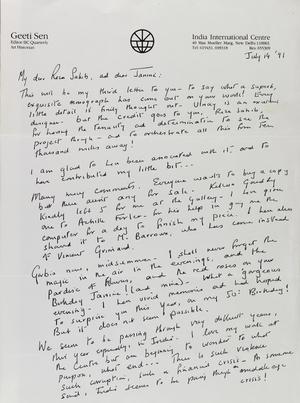 Geeti Sen
Editor IIC Quarterly
Art Historian
India International Centre
40 Max Mueller Marg, New Delhi 110003.
July 14 '91
My dear Raza Sahib, and dear Janine:
This will be my third letter to you - to say what a superb,
exquisite monograph has come out on your work! Every
little detail is finely thought out. is an
designer - but the credit goes to you, Raza Sahib,
for having the tenacity and determination to see the
project through - and to orchestrate all this from ten
thousand miles away!
I am glad to have been associated with it, and to
have contributed my little bit...
Many, many comments. Everyone wants to buy a copy
but there aren't any for sale. Kekoo Gandhy
kindly left 5 for me at the Gallery. I have given
one to for his help in giving me the
computer for a day to finish my piece. I have also
showed it to M. Barrow, who has come instead
of Vincent Grimaud.
Gorbio now, midsummer. I shall never forget the
magic in the air in the evenings, and the
Paradise of flowers, and the red roses on your
Birthday Janine (and mine). What a gorgeous
evening. I have vivid memories and had hoped
to surprise you this year, on my 50th Birthday!
But it does not seem possible.
We seem to be passing through very difficult years,
this year especially, in India. I love my work at
the Centre but am beginning to wonder to what
purpose, what end... There is such violence
such corruption, such a financial crisis. As someone
said, India seems to be going through a middle age
crisis!